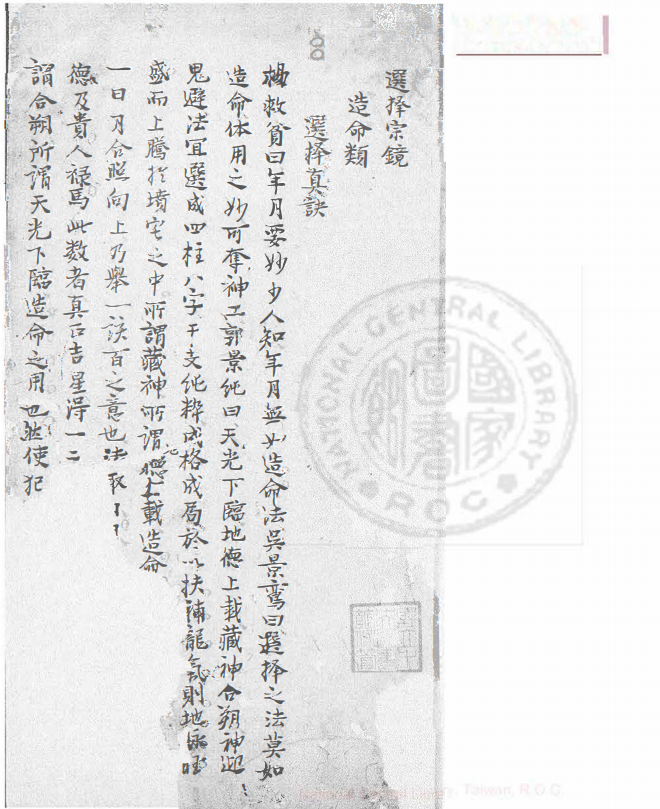 選择宗鏡
造命類
選择真訣
楊救貧曰年月要妙少人知年月無如造命法吳景鸞曰選择之法莫如
造命体用之妙可奪神工郭景純曰天光下臨地德上載藏神合朔神迎
鬼避法宜選成四柱八字干支純粹成格成局於以扶補龍氣則地脉旺
盛而上騰於墳宅之中所謂藏神所謂地德上載造命
一曰月合照向上乃舉一該百之意也法取
德及貴人禄馬此数者真正吉星得一二
謂合朔所謂天光下臨造命之用也然使犯
NATIONAL CENTRAL LIBRARY
R O C
國家圖書館
National Central Library, Taiwan, R.O.C.